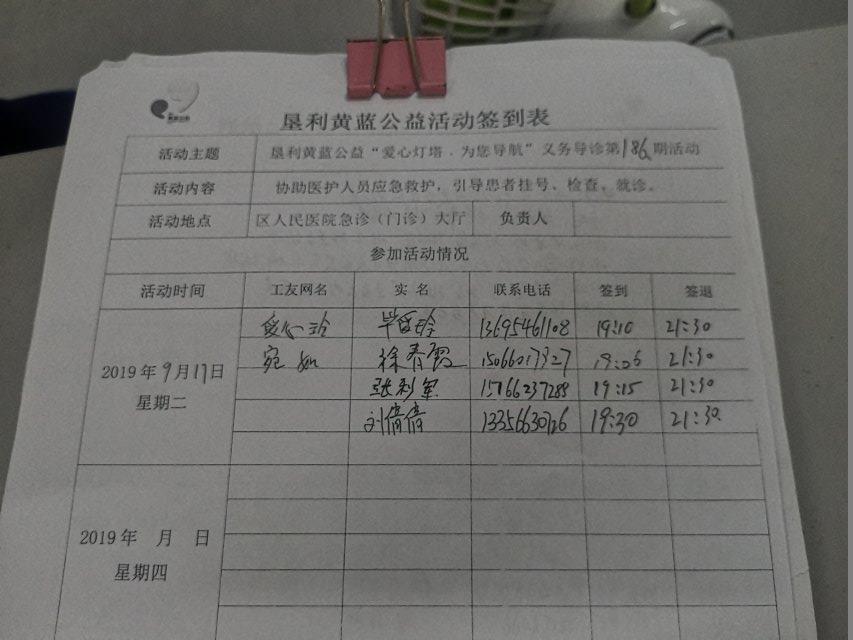 垦利黄蓝公益活动签到表
活动主题 垦利黄蓝公益“爱心灯塔．为您导航”义务导诊第186期活动
活动内容 协助医护人员应急救护，引导患者挂号、检查、就诊。
活动地点 区人民医院急诊（门诊）大厅 负责人
参加活动情况
活动时间 工友网名 实 名 联系电话 签到 签退
爱心玲 13695461108 19:10 21:30
2019年9月17日 宛如 徐春霞 15066017327 19:06 21:30
星期二 张利军 15766237288 19:15 21:30
刘倩倩 13356630726 19:30 21:30
2019年 月 日
星期四